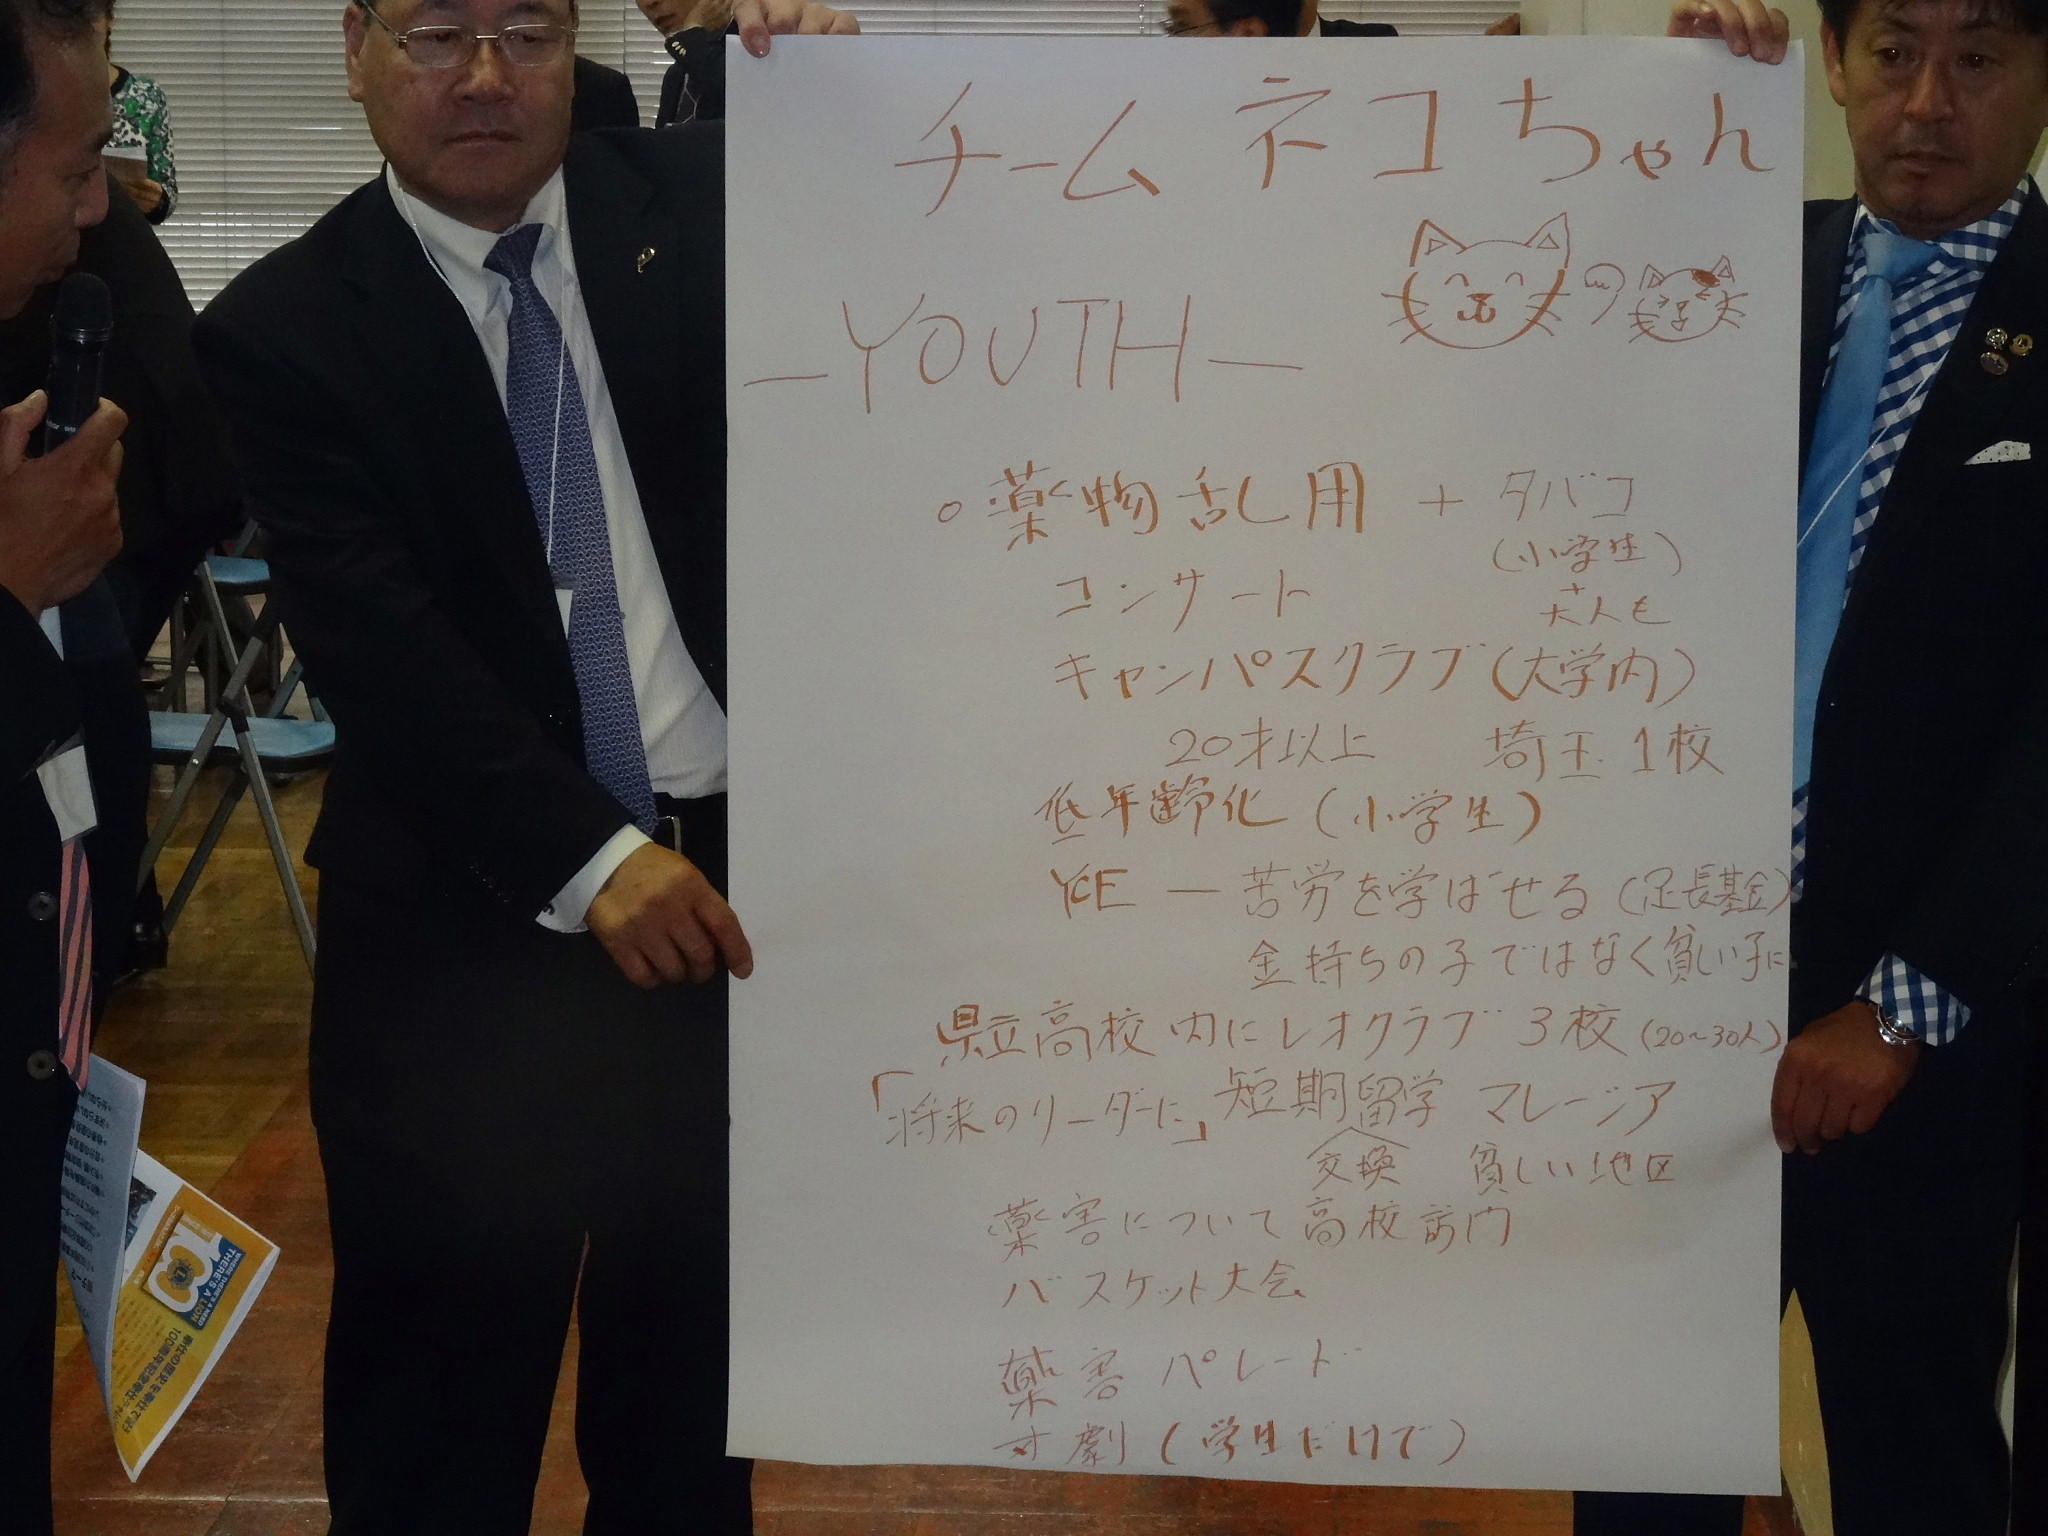 チーム ネコちゃん
―YOUTH―
○薬物乱用 + タバコ
(小学生)
大人も
コンサート
キャンパスクラブ(大学内)
20才以上 埼玉1校
低年齢化(小学生)
YCE ― 苦労を学ばせる(足長基金)
金持ちの子ではなく貧しい子に
県立高校内にレオクラブ 3校(20~30人)
「将来のリーダーに」短期留学 マレージア
交換 貧しい地区
薬害について高校訪門
バスケット大会
薬害パレード
寸劇(学生だけで)
100
WHERE THERE'S A NEED
THERE'S A LION